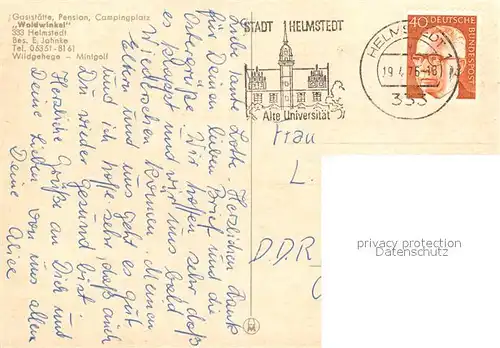 Gaststätte, Pension, Campingplatz
„Waldwinkel"
333 Helmstedt
Bes. E. Jahnke
Tel. 05351-8161
Wildgehege - Minigolf
STADT HELMSTEDT
Alte Universität
HELMSTEDT
333
40 DEUTSCHE
BUNDESPOST
Liebe Tante Lotte. Herzlichen Dank
für Deinen lieben Brief und die
Ostergrüße. Wir hoffen sehr, daß
es klappt und wir uns bald
wiedersehen können. Meinen
Eltern und uns geht es gut
und ich hoffe sehr, daß auch
Du wieder gesund bist.
Herzliche Grüße an Dich und
Deine Lieben von uns allen
Deine Alice
Frau
L.
DDR
privacy protection
Datenschutz